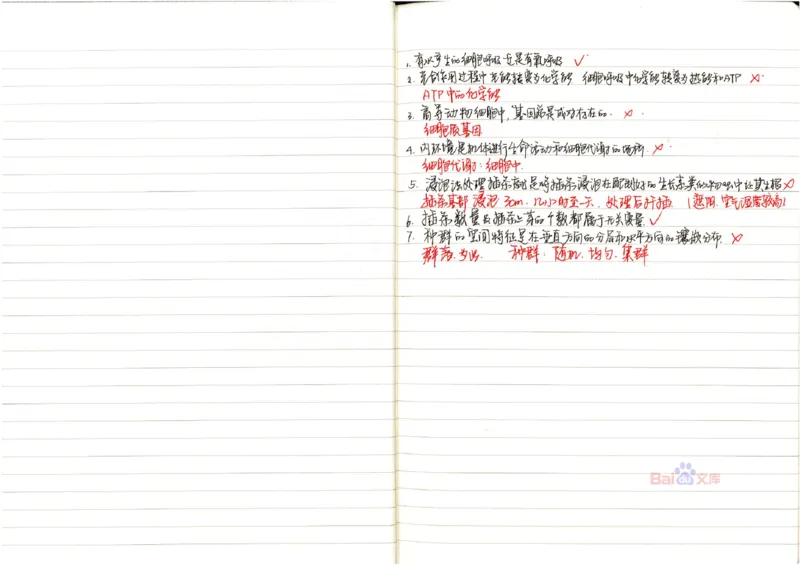 1. 有水产生的细胞呼吸也是有氧呼吸 ✓
2. 光合作用过程中光能转变为化学能 细胞呼吸中化学能转变为热能和ATP ×
ATP中的化学能
3. 高等动物细胞中,基因总是成对存在的. ×
细胞质基因
4. 内环境是机体进行生命活动和细胞代谢的场所. ×
细胞代谢:细胞中.
5. 浸泡法处理插条就是将插条浸泡在配制好的生长素类似物中让其生根 ×
插条基部 浸泡 3cm. 几小时至一天. 处理后扦插 (遮阴.空气湿度较高)
6. 插条数量及插条上芽的个数都属于无关变量 ✓
7. 种群的空间特征是在垂直方向的分层和水平方向的镶嵌分布. ×
群落. 种群:随机.均匀.集群
Baidu文库